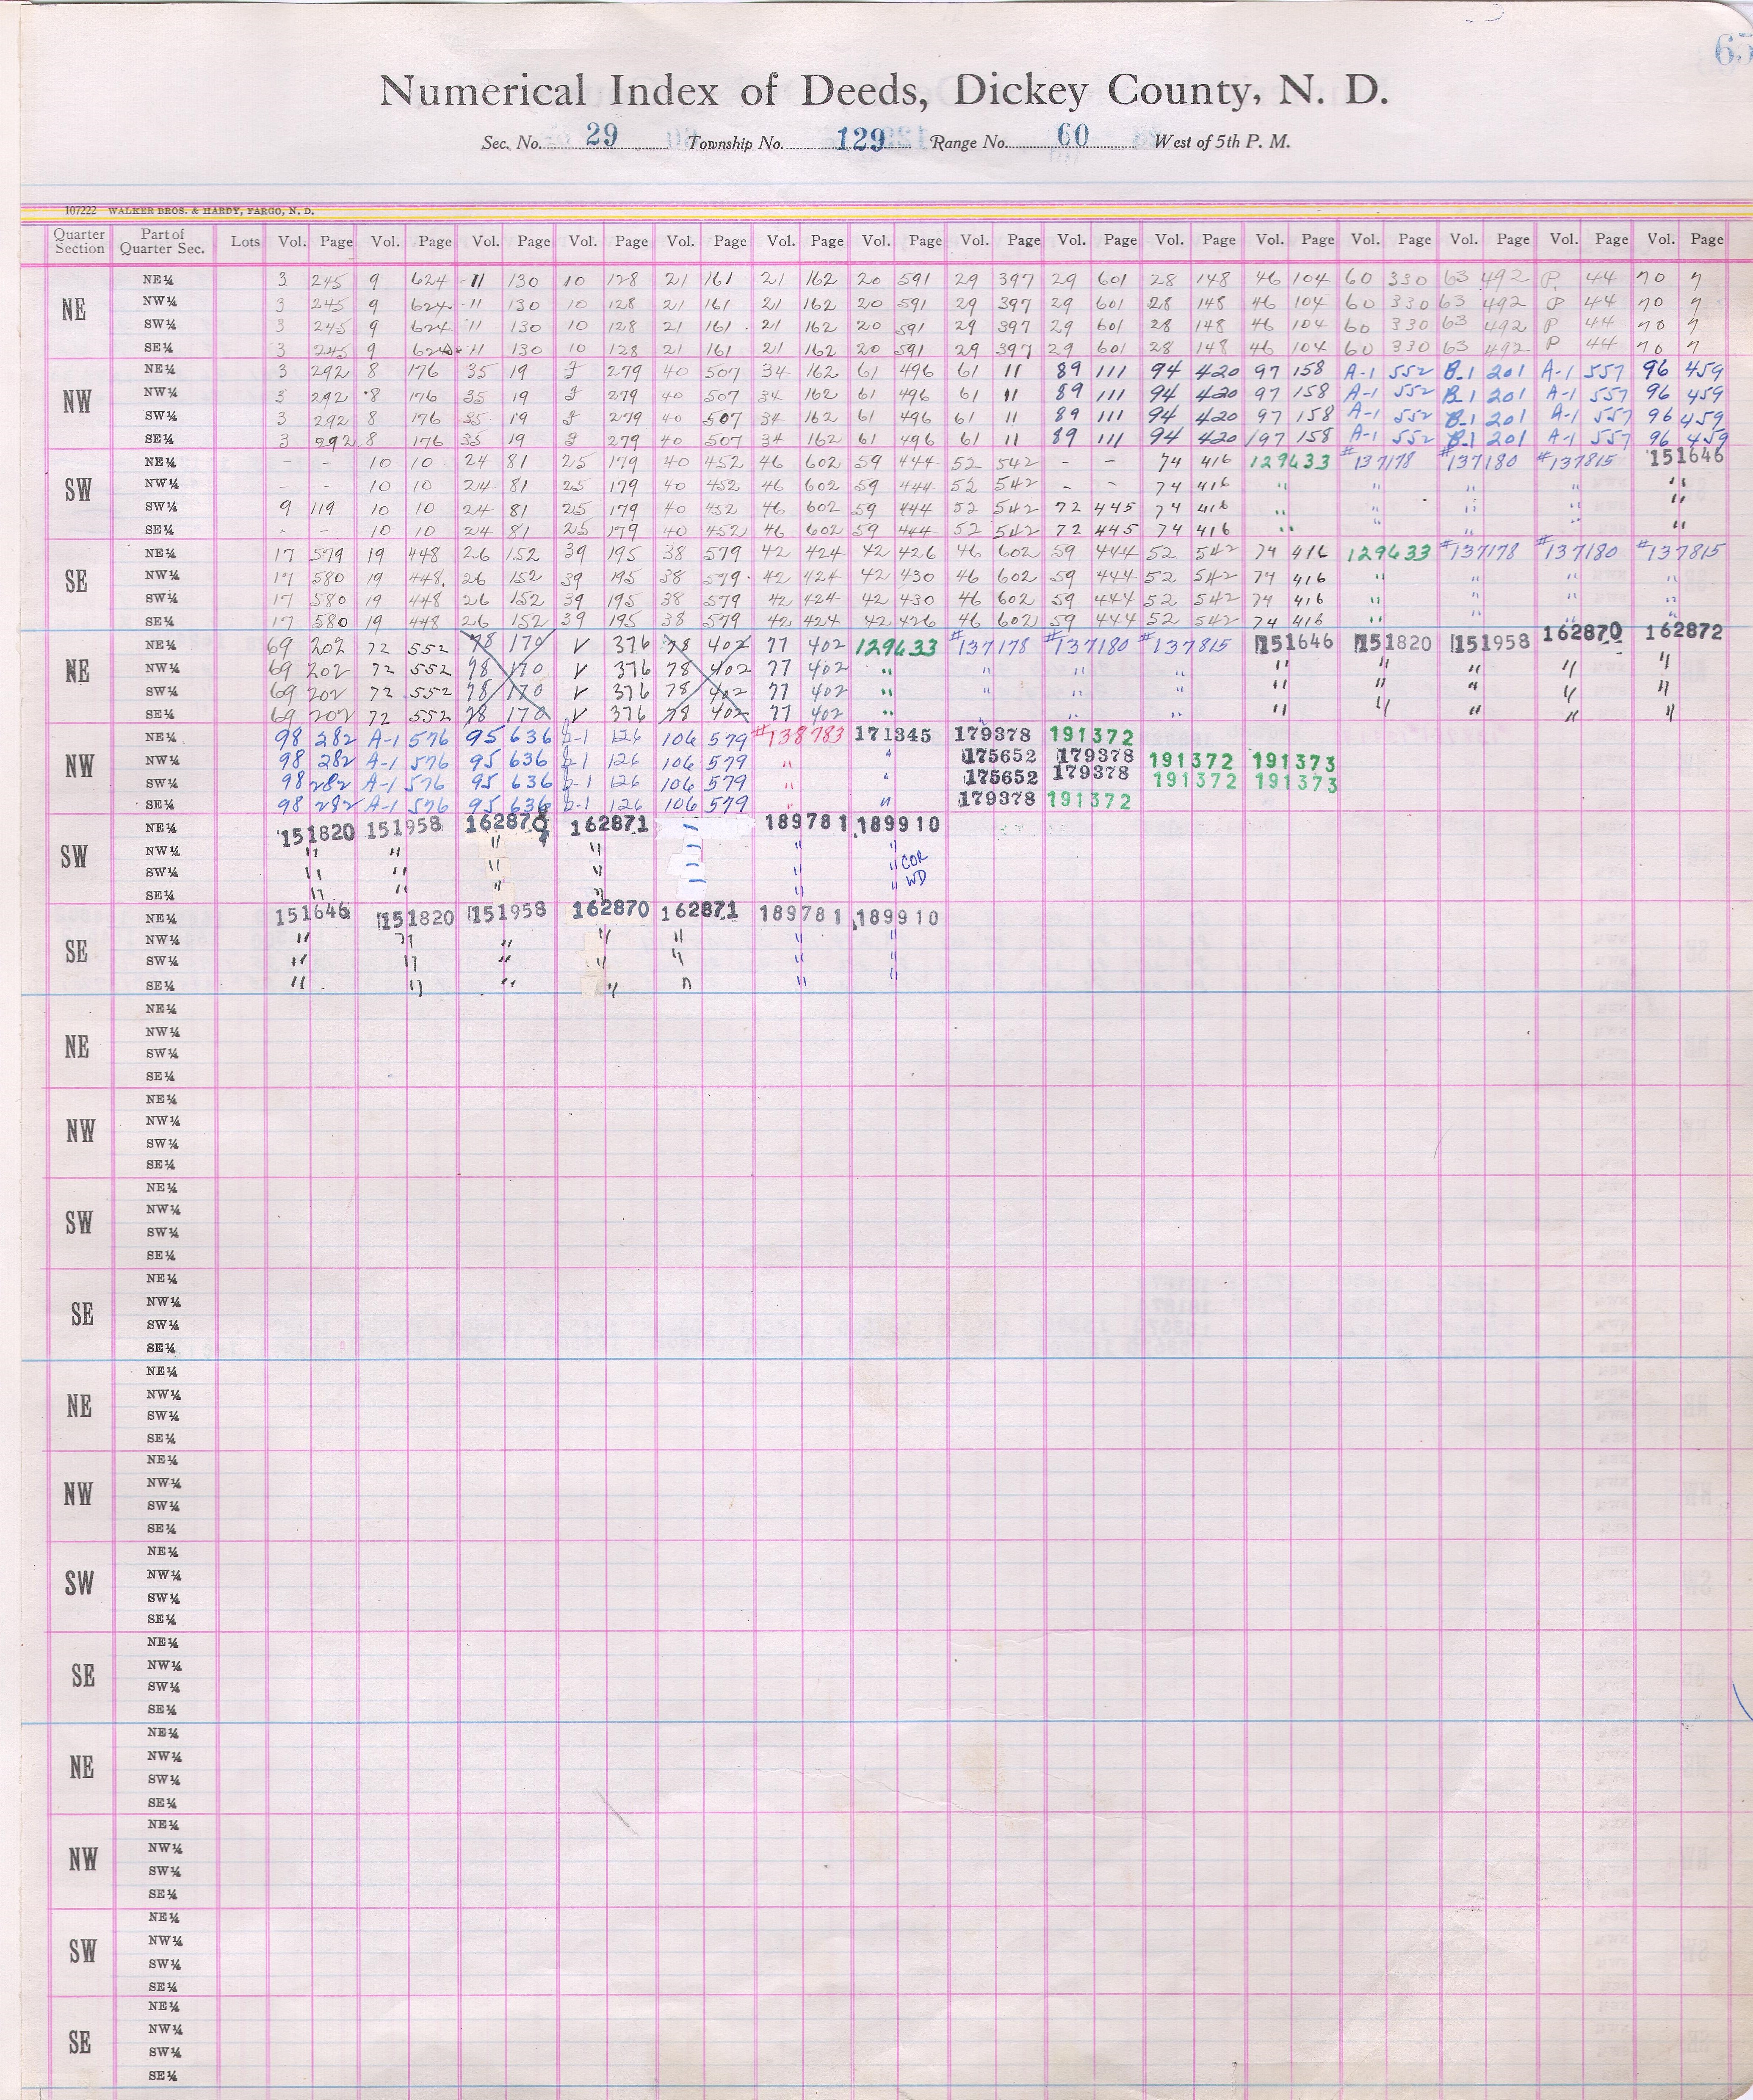 65
Numerical Index of Deeds, Dickey County, N. D.
Sec. No. 29 Township No. 129 Range No. 60 West of 5th P. M.
107222 WALKER BROS. & HARDY, FARGO, N. D.
Quarter Section Part of Quarter Sec. Lots Vol. Page Vol. Page Vol. Page Vol. Page Vol. Page Vol. Page Vol. Page Vol. Page Vol. Page Vol. Page Vol. Page Vol. Page Vol. Page Vol. Page Vol. Page
NE
NE¼ 3 245 9 624 11 130 10 128 21 161 21 162 20 591 29 397 29 601 28 148 46 104 60 330 63 492 P 44 70 7
NW¼ 3 245 9 624 11 130 10 128 21 161 21 162 20 591 29 397 29 601 28 148 46 104 60 330 63 492 P 44 70 7
SW¼ 3 245 9 624 11 130 10 128 21 161 21 162 20 591 29 397 29 601 28 148 46 104 60 330 63 492 P 44 70 7
SE¼ 3 245 9 624 11 130 10 128 21 161 21 162 20 591 29 397 29 601 28 148 46 104 60 330 63 492 P 44 70 7
NW
NE¼ 3 292 8 176 35 19 279 40 507 34 162 61 496 61 11 89 111 94 420 97 158 A-1 552 B-1 201 A-1 557 96 459
NW¼ 3 292 8 176 35 19 279 40 507 34 162 61 496 61 11 89 111 94 420 97 158 A-1 552 B-1 201 A-1 557 96 459
SW¼ 3 292 8 176 35 19 279 40 507 34 162 61 496 61 11 89 111 94 420 97 158 A-1 552 B-1 201 A-1 557 96 459
SE¼ 3 292 8 176 35 19 279 40 507 34 162 61 496 61 11 89 111 94 420 197 158 A-1 552 B-1 201 A-1 557 96 459
SW
NE¼ - - 10 10 24 81 25 179 40 452 46 602 59 444 52 542 - - 74 416 129633 #137178 #137180 #137815 151646
NW¼ - - 10 10 24 81 25 179 40 452 46 602 59 444 52 542 - - 74 416 " " " " "
SW¼ 9 119 10 10 24 81 25 179 40 452 46 602 59 444 52 542 72 445 74 416 " " " " "
SE¼ - - 10 10 24 81 25 179 40 452 46 602 59 444 52 542 72 445 74 416 " " " " "
SE
NE¼ 17 579 19 448 26 152 39 195 38 579 42 424 42 426 46 602 59 444 52 542 74 416 129633 #137178 #137180 #137815
NW¼ 17 580 19 448 26 152 39 195 38 579 42 424 42 430 46 602 59 444 52 542 74 416 " " " "
SW¼ 17 580 19 448 26 152 39 195 38 579 42 424 42 430 46 602 59 444 52 542 74 416 " " " "
SE¼ 17 580 19 448 26 152 39 195 38 579 42 424 42 426 46 602 59 444 52 542 74 416 " " " "
NE
NE¼ 69 202 72 552 78 170 V 376 78 402 77 402 129633 #137178 #137180 #137815 151646 151820 151958 162870 162872
NW¼ 69 202 72 552 78 170 V 376 78 402 77 402 " " " " " " " " "
SW¼ 69 202 72 552 78 170 V 376 78 402 77 402 " " " " " " " " "
SE¼ 69 202 72 552 78 170 V 376 78 402 77 402 " " " " " " " " "
NW
NE¼ 98 282 A-1 576 95 636 126 106 579 #138783 171345 179378 191372
NW¼ 98 282 A-1 576 95 636 126 106 579 " " 175652 179378 191372 191373
SW¼ 98 282 A-1 576 95 636 126 106 579 " " 175652 179378 191372 191373
SE¼ 98 282 A-1 576 95 636 126 106 579 " " 179378 191372
SW
NE¼ 151820 151958 162870 162871 189781 189910
NW¼ " " " " " "
SW¼ " " " " " " COR
SE¼ " " " " " " WD
SE
NE¼ 151646 151820 151958 162870 162871 189781 189910
NW¼ " " " " " " "
SW¼ " " " " " " "
SE¼ " " " " " "
NE
NE¼
NW¼
SW¼
SE¼
NW
NE¼
NW¼
SW¼
SE¼
SW
NE¼
NW¼
SW¼
SE¼
SE
NE¼
NW¼
SW¼
SE¼
NE
NE¼
NW¼
SW¼
SE¼
NW
NE¼
NW¼
SW¼
SE¼
SW
NE¼
NW¼
SW¼
SE¼
SE
NE¼
NW¼
SW¼
SE¼
NE
NE¼
NW¼
SW¼
SE¼
NW
NE¼
NW¼
SW¼
SE¼
SW
NE¼
NW¼
SW¼
SE¼
SE
NE¼
NW¼
SW¼
SE¼